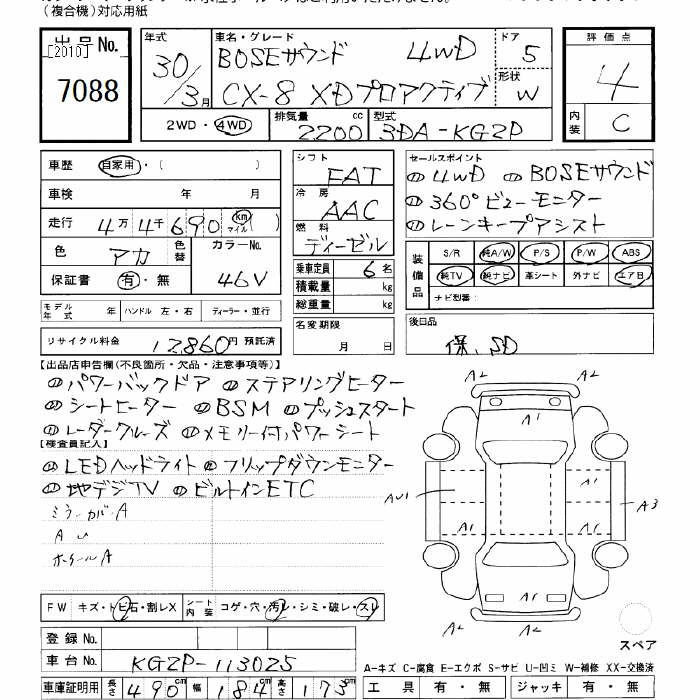 (複合機)対応用紙
出品No. [2010] 7088
年式 30/3月 車名・グレード BOSEサウンド 4WD ドア 5
CX-8 XDプロアクティブ 形状 W
評価点 4
内装 C
2WD・4WD 排気量 2200 cc 型式 3DA-KG2P
車歴 自家用・( )
車検 年 月
走行 4万4千690 km マイル ( )
色 アカ 色替 カラーNo. 46V
保証書 有・無
モデル年式 年 ハンドル 左・右 ディーラー・並行
リサイクル料金 12,860円 預託済
シフト FAT
冷房 AAC
燃料 ディーゼル
乗車定員 6名
積載量 kg
総重量 kg
名変期限
月 日
セールスポイント
4WD BOSEサウンド
360°ビューモニター
レーンキープアシスト
装備品 S/R 純A/W P/S P/W ABS
純TV 純ナビ 革シート 外ナビ エアB
ナビ型番:
後日品
保、SD
【出品店申告欄(不良箇所・欠品・注意事項等)】
パワーバックドア ステアリングヒーター
シートヒーター BSM プッシュスタート
レーダークルーズ メモリー付パワーシート
【検査員記入】
LEDヘッドライト フリップダウンモニター
地デジTV ビルトインETC
ミラーカバーA
A U
ホイールA
A2 A2
A1
AU1 A1 A3
A1 A1
A1
A2 A2
スペア
FW キズ・トビ石・割レX シート内装 コゲ・穴・汚レ・シミ・破レ・スレ
登録No.
車台No. KG2P-113025
A-キズ C-腐食 E-エクボ S-サビ U-凹ミ W-補修 XX-交換済
車庫証明用 長さ 490cm 幅 184cm 高さ 173cm
工具 有・無 ジャッキ 有・無